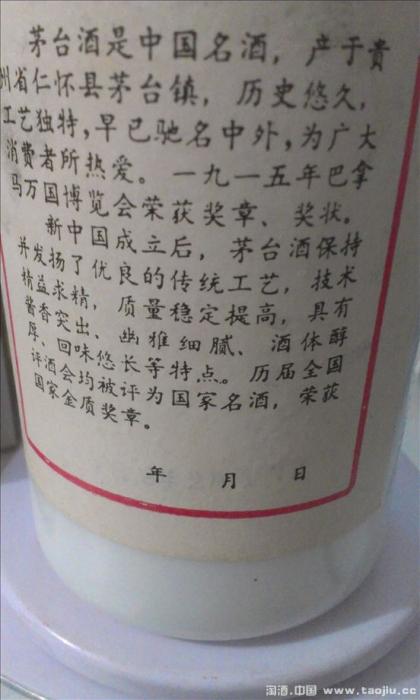 茅台酒是中国名酒，产于贵
州省仁怀县茅台镇，历史悠久，
工艺独特，早已驰名中外，为广大
消费者所热爱。一九一五年巴拿
马万国博览会荣获奖章、奖状。
新中国成立后，茅台酒保持
并发扬了优良的传统工艺，技术
精益求精，质量稳定提高，具有
酱香突出、幽雅细腻、酒体醇
厚、回味悠长等特点。历届全国
评酒会均被评为国家名酒，荣获
国家金质奖章。
年 月 日
淘酒.中国 www.taojiu.cc